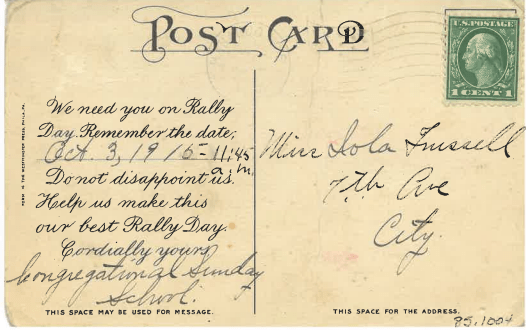 POST CARD
U.S. POSTAGE
1 CENT 1
We need you on Rally
Day. Remember the date,
Oct. 3, 1915 - 11:45
a.m.
Do not disappoint us.
Help us make this
our best Rally Day.
Cordially yours
Congregational Sunday
School.
THIS SPACE MAY BE USED FOR MESSAGE.
Miss Iola Fussell
7th Ave
City.
THIS SPACE FOR THE ADDRESS.
95.1004